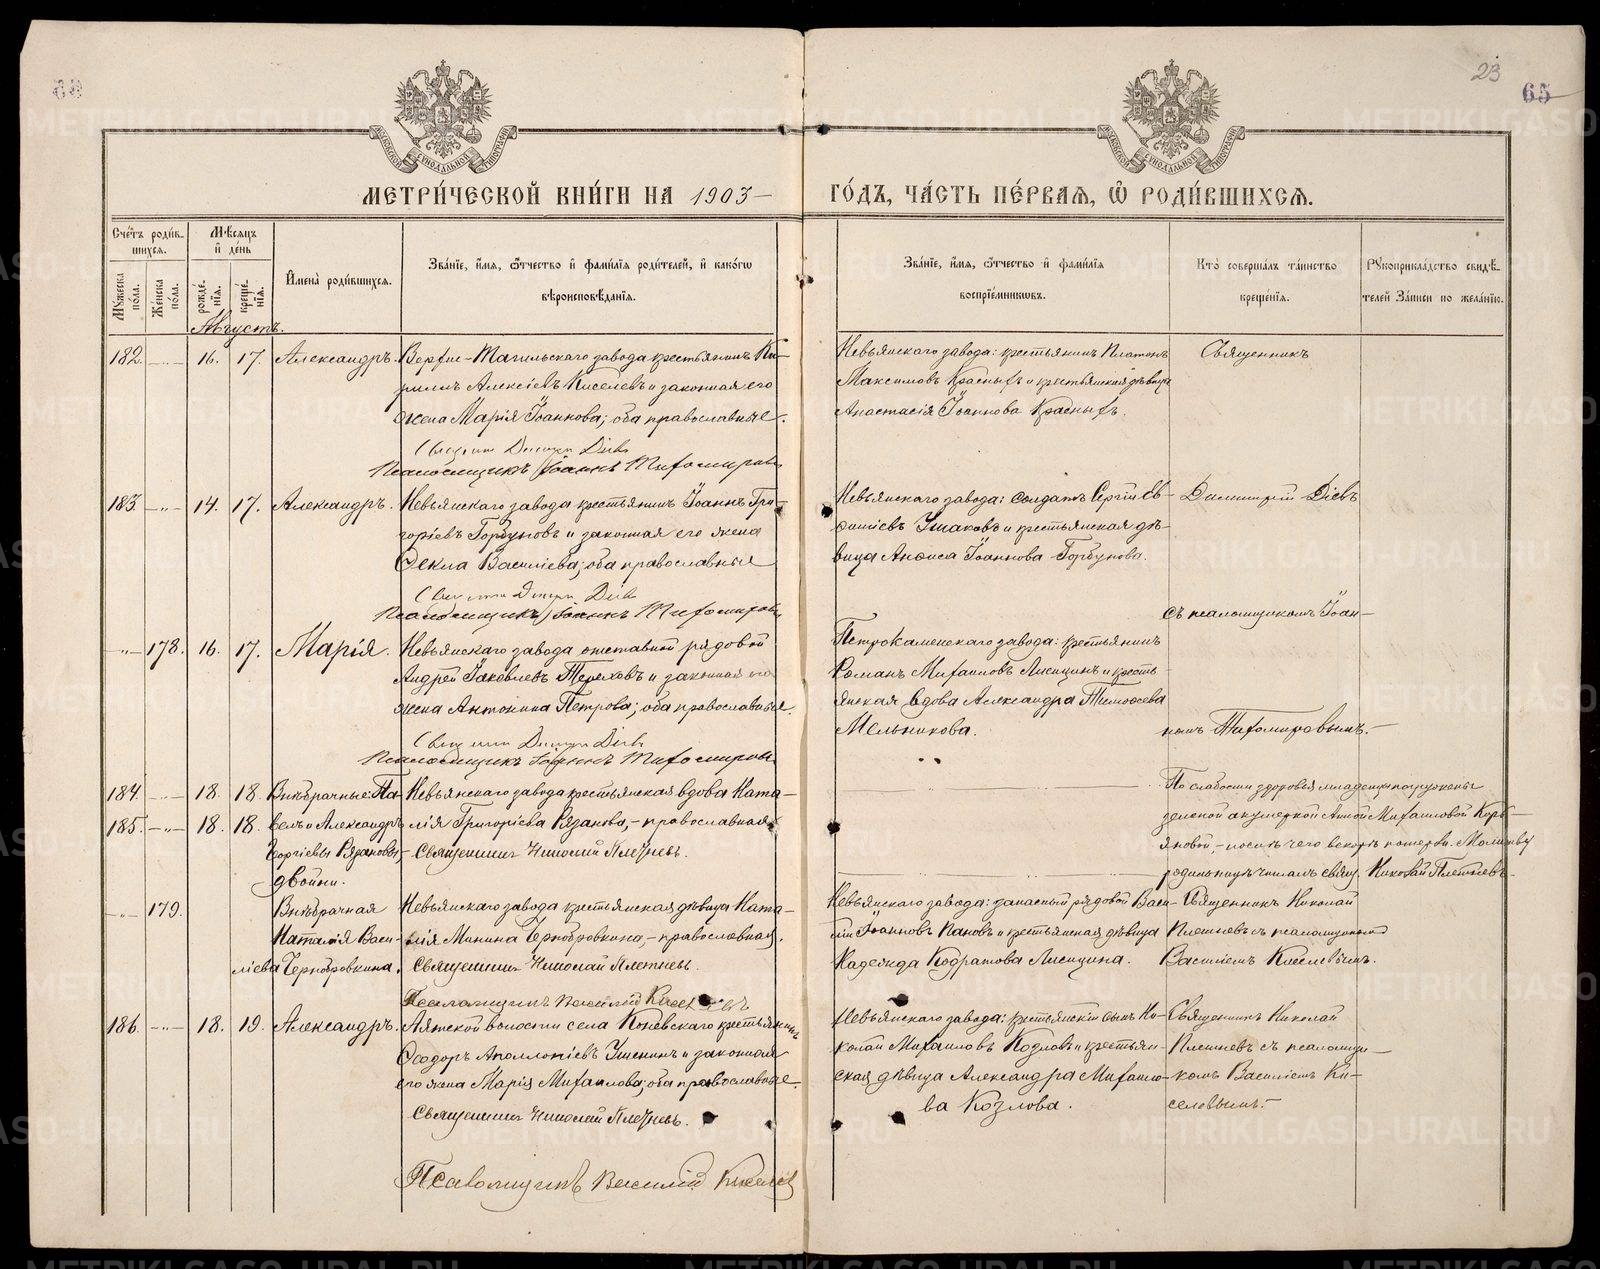 23
65
МЕТРИ́ЧЕСКОЙ КНИ́ГИ НА 1903 – ГО́ДЪ, ЧА́СТЬ ПЕ́РВАЯ, Ѿ РОДИ́ВШИХСЯ.
Сче́тъ роди́в-
шихся.
Мѣсяцъ
и́ де́нь
Му́жеска по́ла.
Же́нска по́ла.
рожде́нїя.
креще́нїя.
И́мена̀ роди́вшихся.
Зва́нїе, и́мя, ѻ́тчество и́ фами́лїя роди́телей, и́ како́гѡ
вѣроисповѣ́данїя.
Зва́нїе, и́мя, ѻ́тчество и́ фами́лїя
воспрїе́мникѡвъ.
Кто̀ соверша́лъ та́инство
креще́нїя.
Рꙋкоприкла́дство свидѣ́-
телей За́писи по жела́нїю.
Августъ.
182. –"– 16. 17. Александръ. Верхне-Тагильскаго завода крестьянинъ Ки-
риллъ Алексіевъ Киселевъ и законная его
жена Марія Іоаннова; оба православные.
Псаломщикъ Іоаннъ Тихомировъ
Невьянскаго завода: крестьянинъ Платонъ
Максимовъ Красныхъ и крестьянская дѣвица
Анастасія Іоаннова Красныхъ.
Священникъ
183. –"– 14. 17. Александръ. Невьянскаго завода крестьянинъ Іоаннъ Гри-
горіевъ Горбуновъ и законная его жена
Ѳекла Василіева; оба православные
Псаломщикъ Іоаннъ Тихомировъ
Невьянскаго завода: солдатъ Сергій Ев-
ѳиміевъ Ушаковъ и крестьянская дѣ-
вица Анѳиса Іоаннова Горбунова.
Димитрій Діевъ
съ псаломщикомъ Іоан-
–"– 178. 16. 17. Марія. Невьянскаго завода отставной рядовой
Андрей Іаковлевъ Тереховъ и законная его
жена Антонина Петрова; оба православные.
Псаломщикъ Іоаннъ Тихомировъ
Петрокаменскаго завода: крестьянинъ
Романъ Михаиловъ Лисицинъ и кресть-
янская вдова Александра Тимоѳеева
Мельникова.
номъ Тихомировымъ. –
184. –"– 18. 18. Внѣбрачные: Па-
185. –"– 18. 18. велъ и Александръ
Георгіевы Рязановы,
двойни.
Невьянскаго завода крестьянская вдова Ната-
лія Григоріева Рязанова, – православная.
Священникъ Николай Плетневъ.
По слабости здоровья младенцы погружены
земской акушеркой Анной Михаиловой Корь-
яновой, – послѣ чего вскорѣ померли. Молитву
родильницѣ читалъ свящ. Николай Плетневъ. –
–"– 179. Внѣбрачная
Наталія Васи-
ліева Чернобровкина.
Невьянскаго завода крестьянская дѣвица Ната-
лія Минина Чернобровкина, – православная.
Священникъ Николай Плетневъ.
Псаломщикъ Василій Киселевъ
Невьянскаго завода: запасный рядовой Васи-
лій Іоанновъ Пановъ и крестьянская дѣвица
Надежда Кодратова Лисицина.
Священникъ Николай
Плетневъ съ псаломщикомъ
Василіемъ Киселевымъ.
186. –"– 18. 19. Александръ. Аятской волости села Коневскаго крестьянинъ
Ѳеодоръ Аполлоніевъ Ушенинъ и законная
его жена Марія Михаилова; оба православные.
Священникъ Николай Плетневъ.
Псаломщикъ Василій Киселев
Невьянскаго завода: крестьянскій сынъ Ни-
колай Михаиловъ Козловъ и крестьян-
ская дѣвица Александра Михаило-
ва Козлова.
Священникъ Николай
Плетневъ съ псаломщи-
комъ Василіемъ Ки-
селевымъ. –